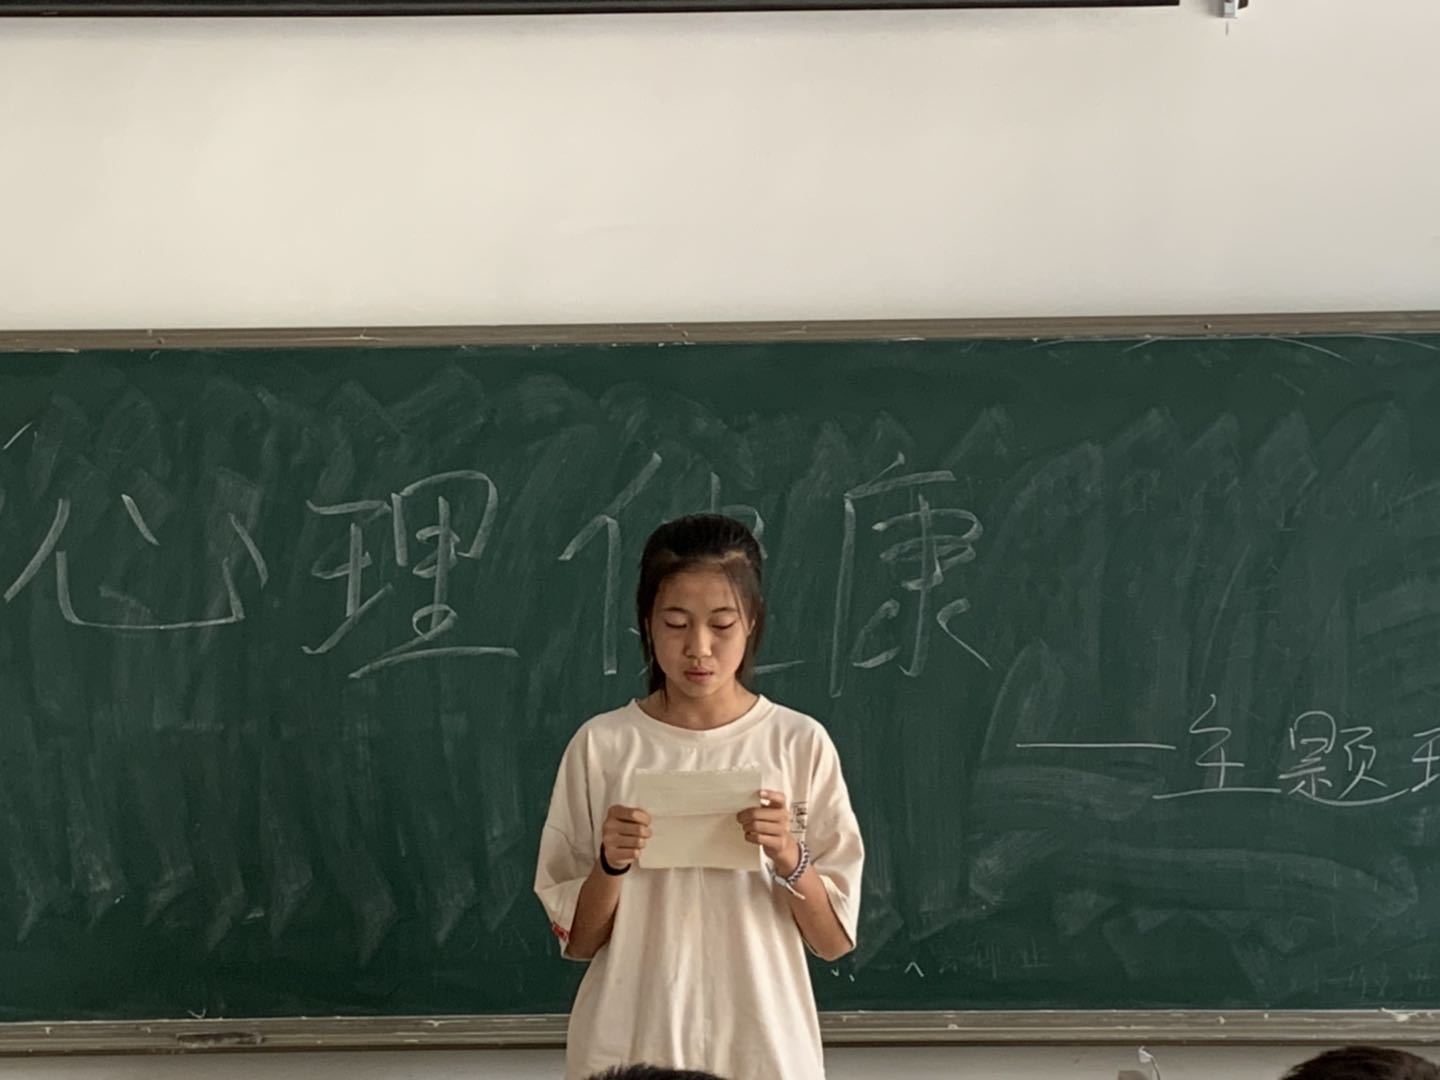 心理健康
——主题班